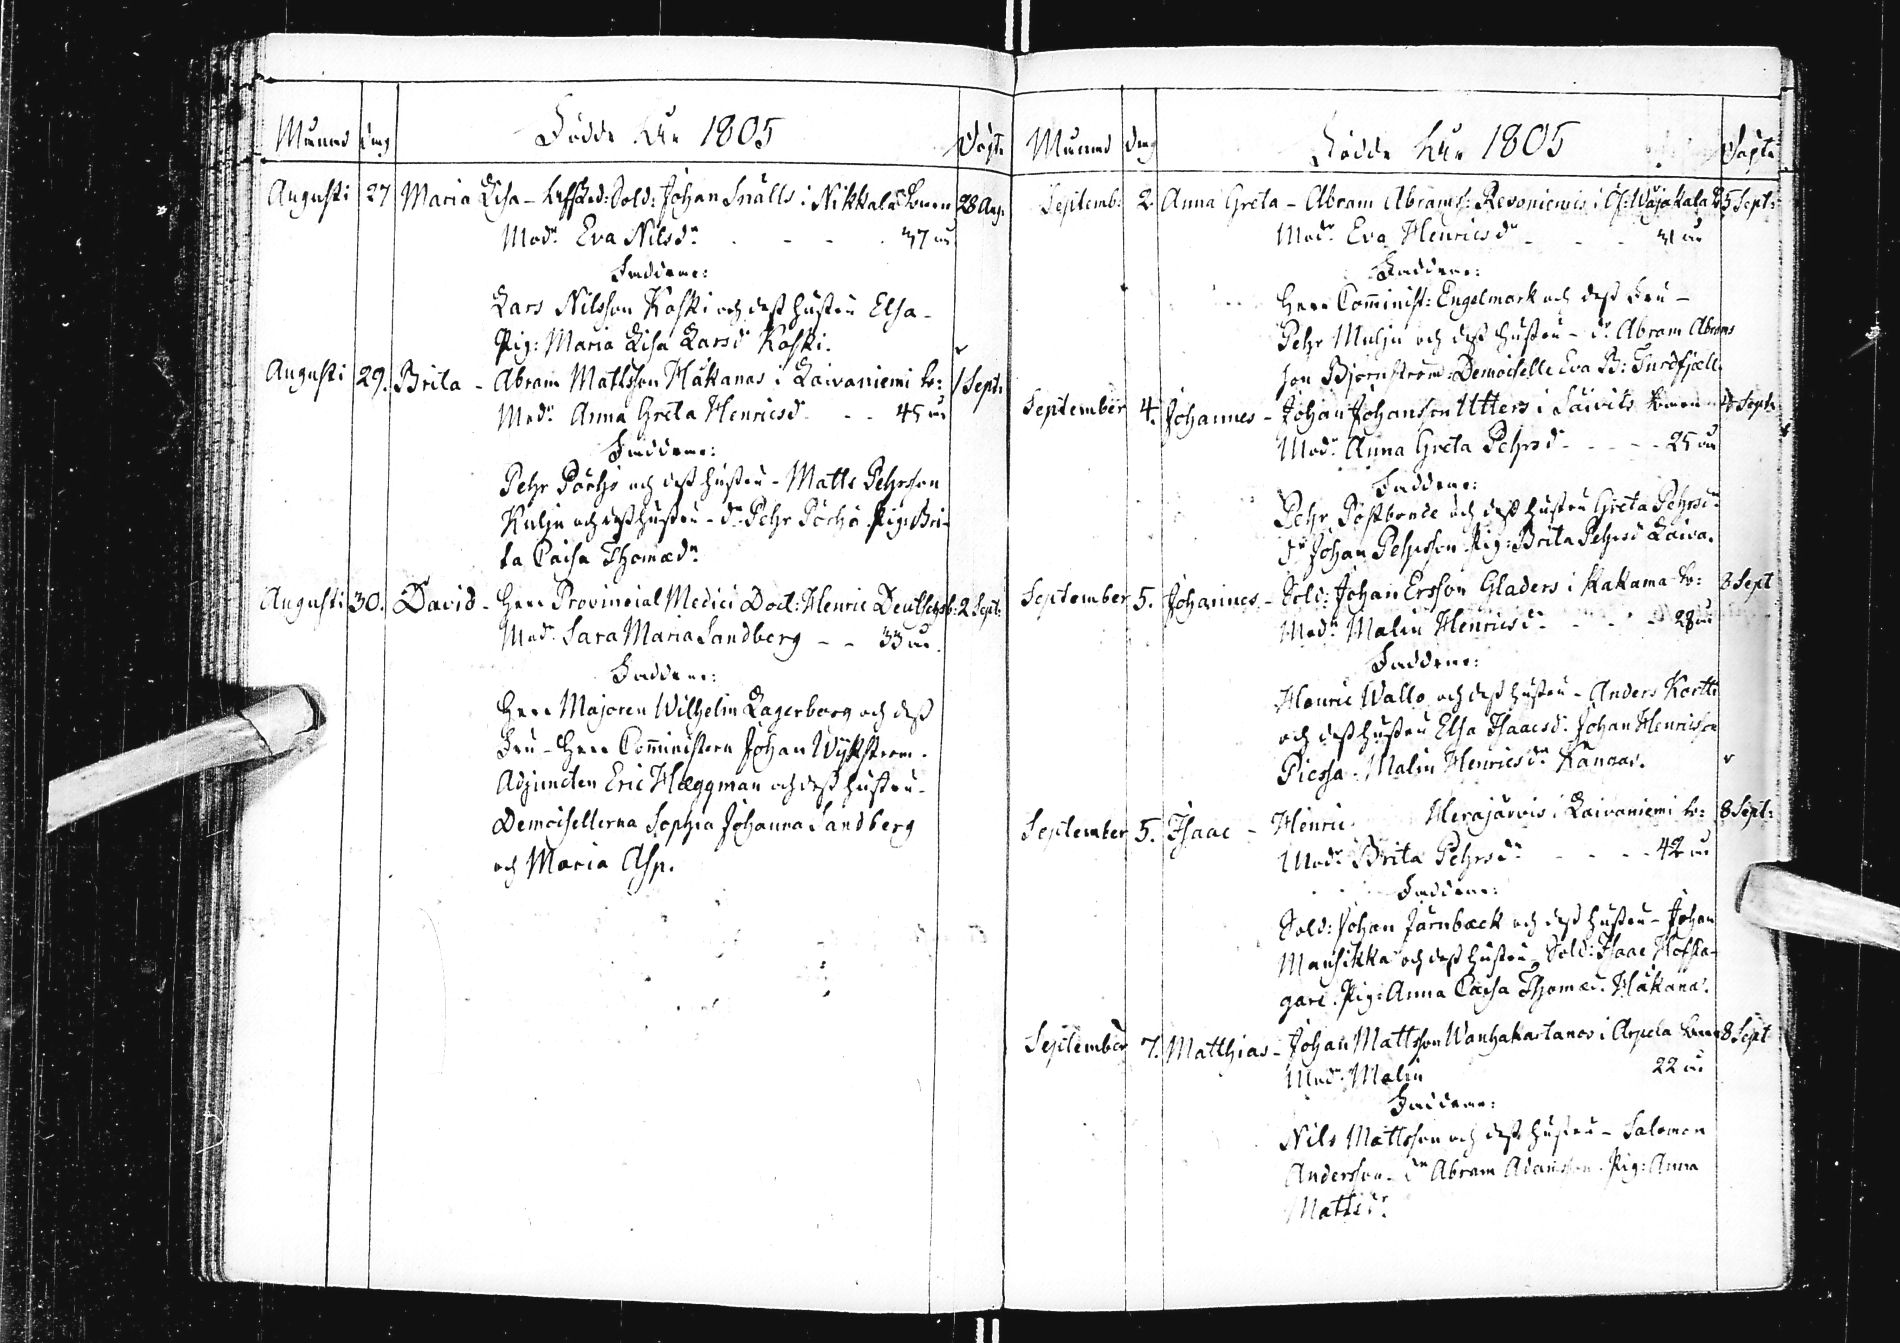 Månad dag Födde År 1805 Döpte
Augusti 27 Maria Lisa - Afsked: Sold: Johan Snälls i Nikkala 28 Aug.
Modr Eva Nilsdr - - - 37 år
Faddrar:
Lars Nilsson Koski och dess hustru Elsa -
Pig: Maria Lisa Larsdr Koski.
Augusti 29. Brita - Abram Mattsson Håkanas i Laivaniemi br: 1 Sept:
Modr Anna Greta Henricsdr - - 45 år
Faddrar:
Pehr Pörhö och dess hustru - Matts Pehrsson
Kulju och dess hustru - dr. Pehr Pörhö. Pig: Bri-
ta Caisa Thomædr
Augusti 30. David - Herr Provincial Medici Doct: Henric Deutsch 2 Sept:
Modr Sara Maria Sandberg - - 33 år.
Faddrar:
Herr Majoren Wilhelm Lagerborg och dess
Fru - Herr Comministern Johan Wykström.
Adjuncten Eric Hæggman och dess hustru -
Demoisellerna Sophia Johanna Sandberg
och Maria Asp.
Månad dag Födde År 1805 Döpte
Septemb: 2 Anna Greta - Abram Abramss: Revoniemis i 5 Sept:
Modr Eva Henricsdr - - - 31 år
Faddrar:
Herr Comminist: Engelmark och dess Fru -
Pehr Mulju och dess hustru - dr. Abram Abrams
son Björnström - Demoiselle Eva B: Turdfjæll.
September 4. Johannes - Johan Johansson Utters i Säivits Sept:
Modr Anna Greta Pehrsdr - - - - 25 år
Faddrar:
Pehr Postbonde och dess hustru Greta Pehrsdr
dr Johan Pehrsson Pig: Brita Pehrsdr Laiva.
September 5. Johannes - Sold: Johan Ersson Gladers i Kakama br: 8 Sept
Modr Malin Henricsdr - - - - 28 år
Faddrar:
Henric Wallo och dess hustru - Anders Kortti
och dess hustru Elsa Isaacsdr. Johan Henricsson
Piessa - Malin Henricsdr Kangas.
September 5. Isaac - Henric Herajärvis i Laivaniemi br: 8 Sept:
Modr Brita Pehrsdr - - - - 42 år
Faddrar:
Sold: Johan Jærnbæck och dess hustru - Johan
Mansikka och dess hustru - Sold: Isaac Hofta-
gare. Pig: Anna Caisa Thomædr. Håkana.
September 7. Matthias - Johan Mattsson Wanhakartanos i Arpela 8 Sept
Modr Malin 22 år
Faddrar:
Nils Mattsson och dess hustru - Salomon
Andersson - dr Abram Adamsson. Pig: Anna
Mattsdr.